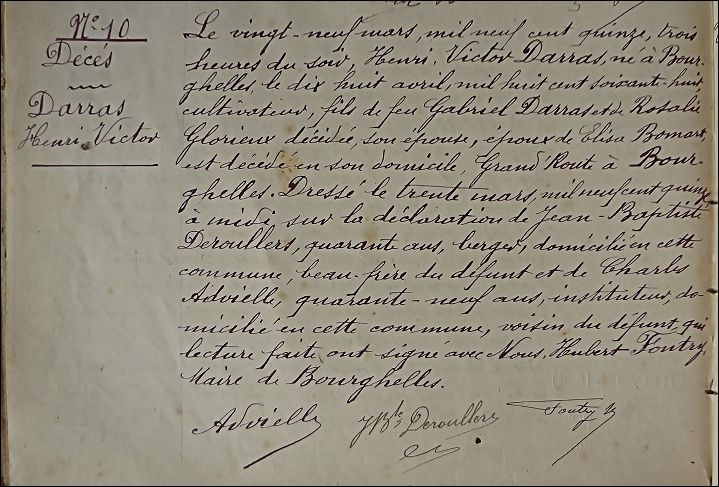 N° 10
Décés
Darras
Henri Victor
Le vingt-neuf mars, mil neuf cent quinze, trois
heures du soir, Henri, Victor Darras, né à Bour-
ghelles, le dix huit avril, mil huit cent soixante-huit,
cultivateur, fils de feu Gabriel Darras et de Rosalie
Glorieux décidée, son épouse, époux de Elisa Bomart,
est décédé en son domicile, Grand'Route à Bour-
ghelles. Dressé le trente mars, mil neuf cent quinze
à midi sur la déclaration de Jean-Baptiste
Deroullers, quarante ans, berger, domicilié en cette
commune, beau-frère du défunt et de Charles
Advielle, quarante-neuf ans, instituteur, do-
micilié en cette commune, voisin du défunt, qui
lecture faite ont signé avec Nous, Hubert Fontry,
Maire de Bourghelles.
Advielle JBte Deroullers Fontry H